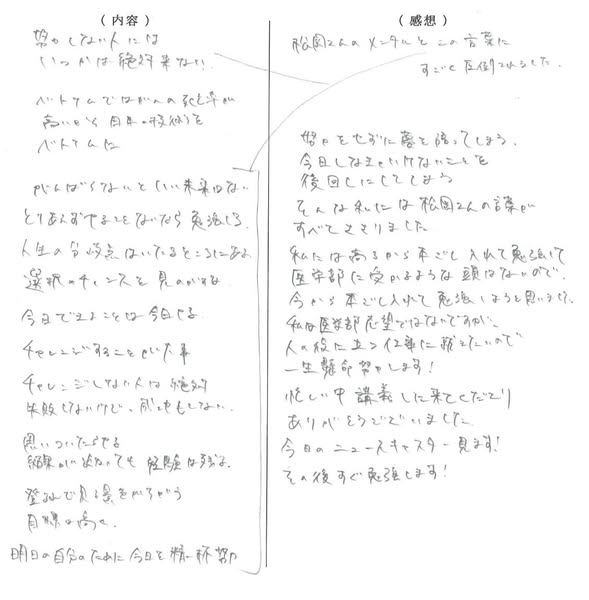 (内容)
努力しない人には
いつかは絶対来ない。
ベトナムではがんの死亡率が
高いから日本の技術を
ベトナムに
がんばらないといい未来はない
とりあえずやることないなら勉強しろ
人生の分岐点はいたるところにある
選択のチャンスを見のがすな
今日できることは今日やる
チャレンジすることが大事
チャレンジしない人は絶対
失敗しないけど、成功もしない。
思いついたらやる
結果が出なくても経験は残る。
登山で見る景色がちがう
目標は高く。
明日の自分のために今日を精一杯努力
(感想)
松岡さんのメンタルとこの言葉に
すごく圧倒されました。
努力をせずに夢を語ってしまう。
今日しなきゃいけないことを
後回しにしてしまう
そんな私には松岡さんの言葉が
すべてささりました
私には高3から本ごし入れて勉強して
医学部に受かるような頭はないので、
今から本ごし入れて勉強しようと思いました。
私は医学部志望ではないですが、
人の役に立つ仕事に就きたいので
一生懸命努力します!
忙しい中講義しに来てくださり
ありがとうございました
今日のニュースキャスター見ます!
その後すぐ勉強します!